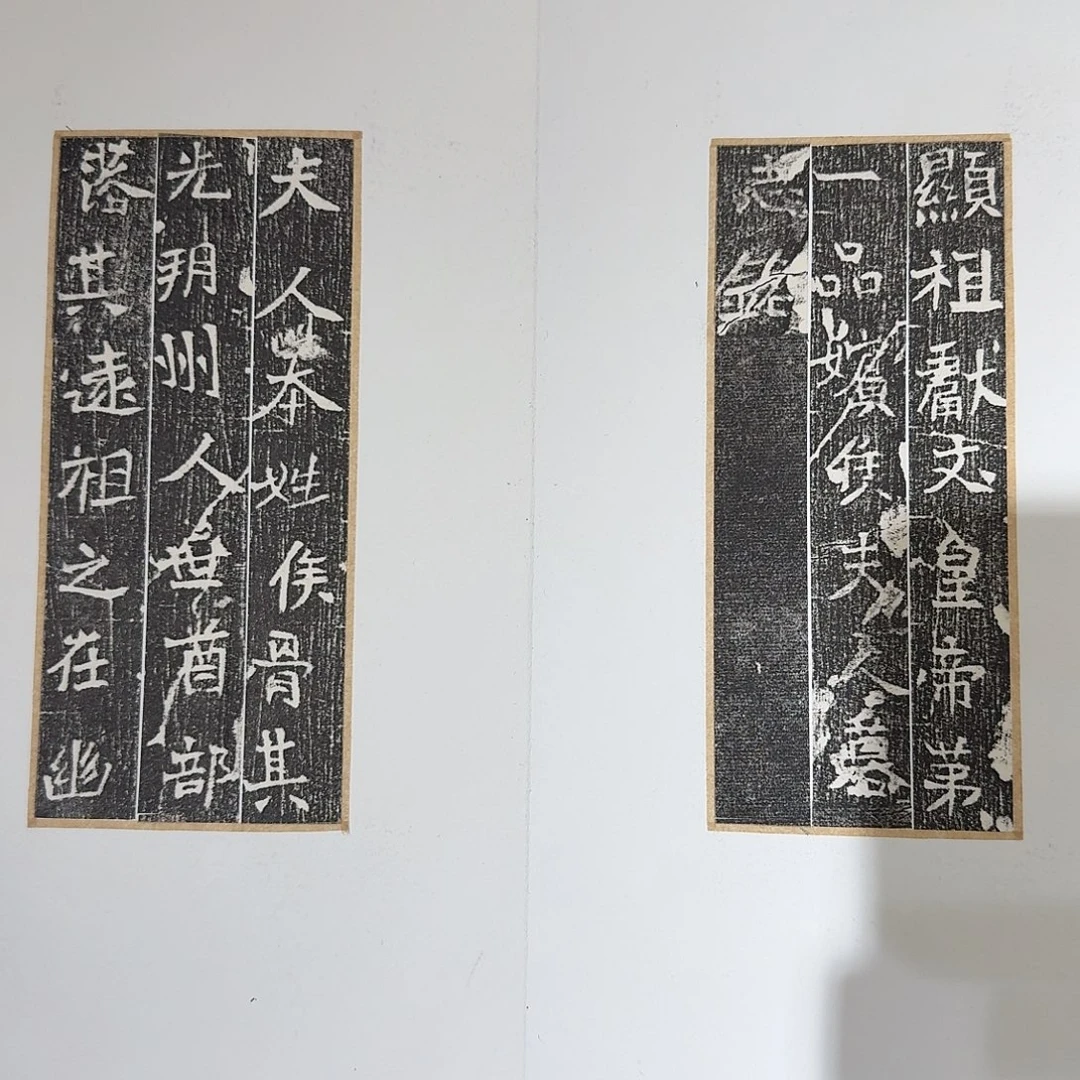 顯祖獻文皇帝苐
一品嬪侯夫人墓
志銘
夫人本姓侯骨其
先朔州人世酋部
落其遠祖之在幽